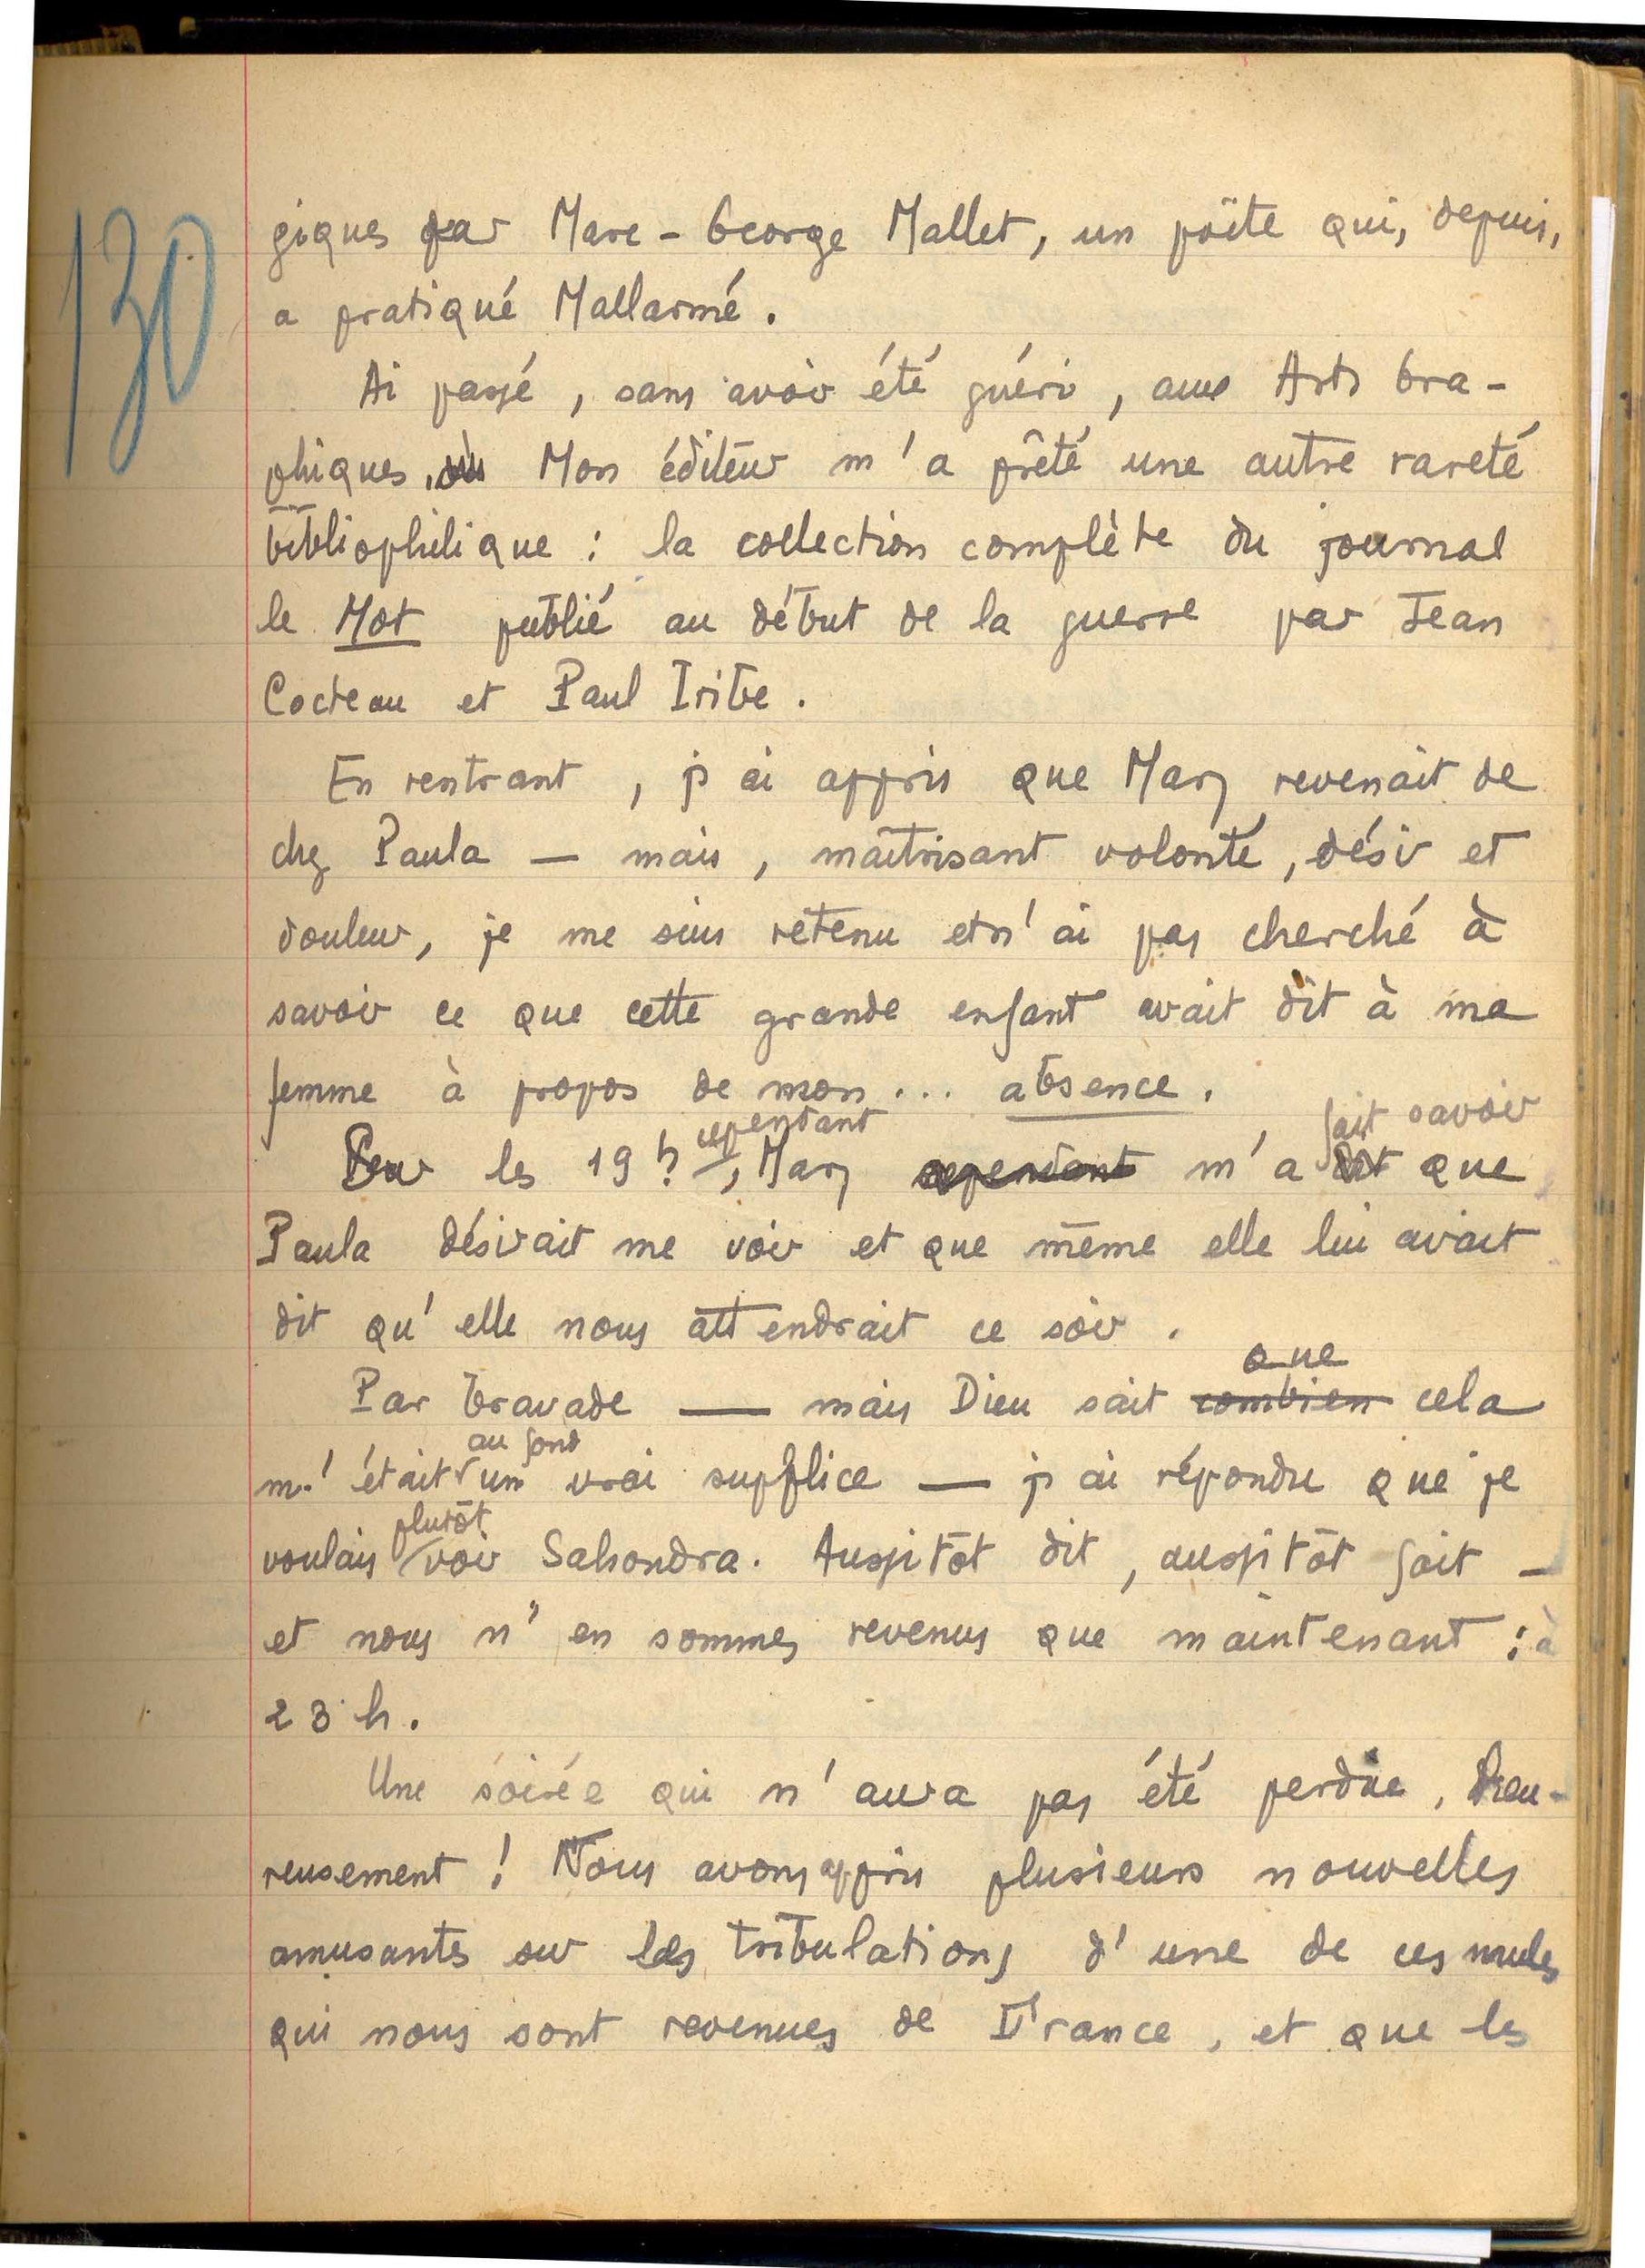 130
giques par Marc-George Mallet, un poëte qui, depuis,
a pratiqué Mallarmé.
Ai passé, sans avoir été guéri, aux Arts Gra-
phiques, où Mon éditeur m'a prêté une autre rareté
bibliophilique : la collection complète du journal
le Mot publié au début de la guerre par Jean
Cocteau et Paul Iribe.
En rentrant, j'ai appris que Mary revenait de
chez Paula — mais, maîtrisant volonté, désir et
douleur, je me suis retenu et n'ai pas cherché à
savoir ce que cette grande enfant avait dit à ma
femme à propos de mon... absence.
cependant fait savoir
les 19 h, Mary cependant m'a dit que
Paula désirait me voir et que même elle lui avait
dit qu'elle nous attendrait ce soir.
que
Par bravade — mais Dieu sait combien cela
au fond
m'était un vrai supplice — j'ai répondu que je
plutôt
voulais voir Sahondra. Aussitôt dit, aussitôt fait —
et nous n'en sommes revenus que maintenant : à
23 h.
Une soirée qui n'aura pas été perdue, heu-
reusement ! Nous avons appris plusieurs nouvelles
amusantes sur les tribulations d'une de ces mules
qui nous sont revenues de France, et que les